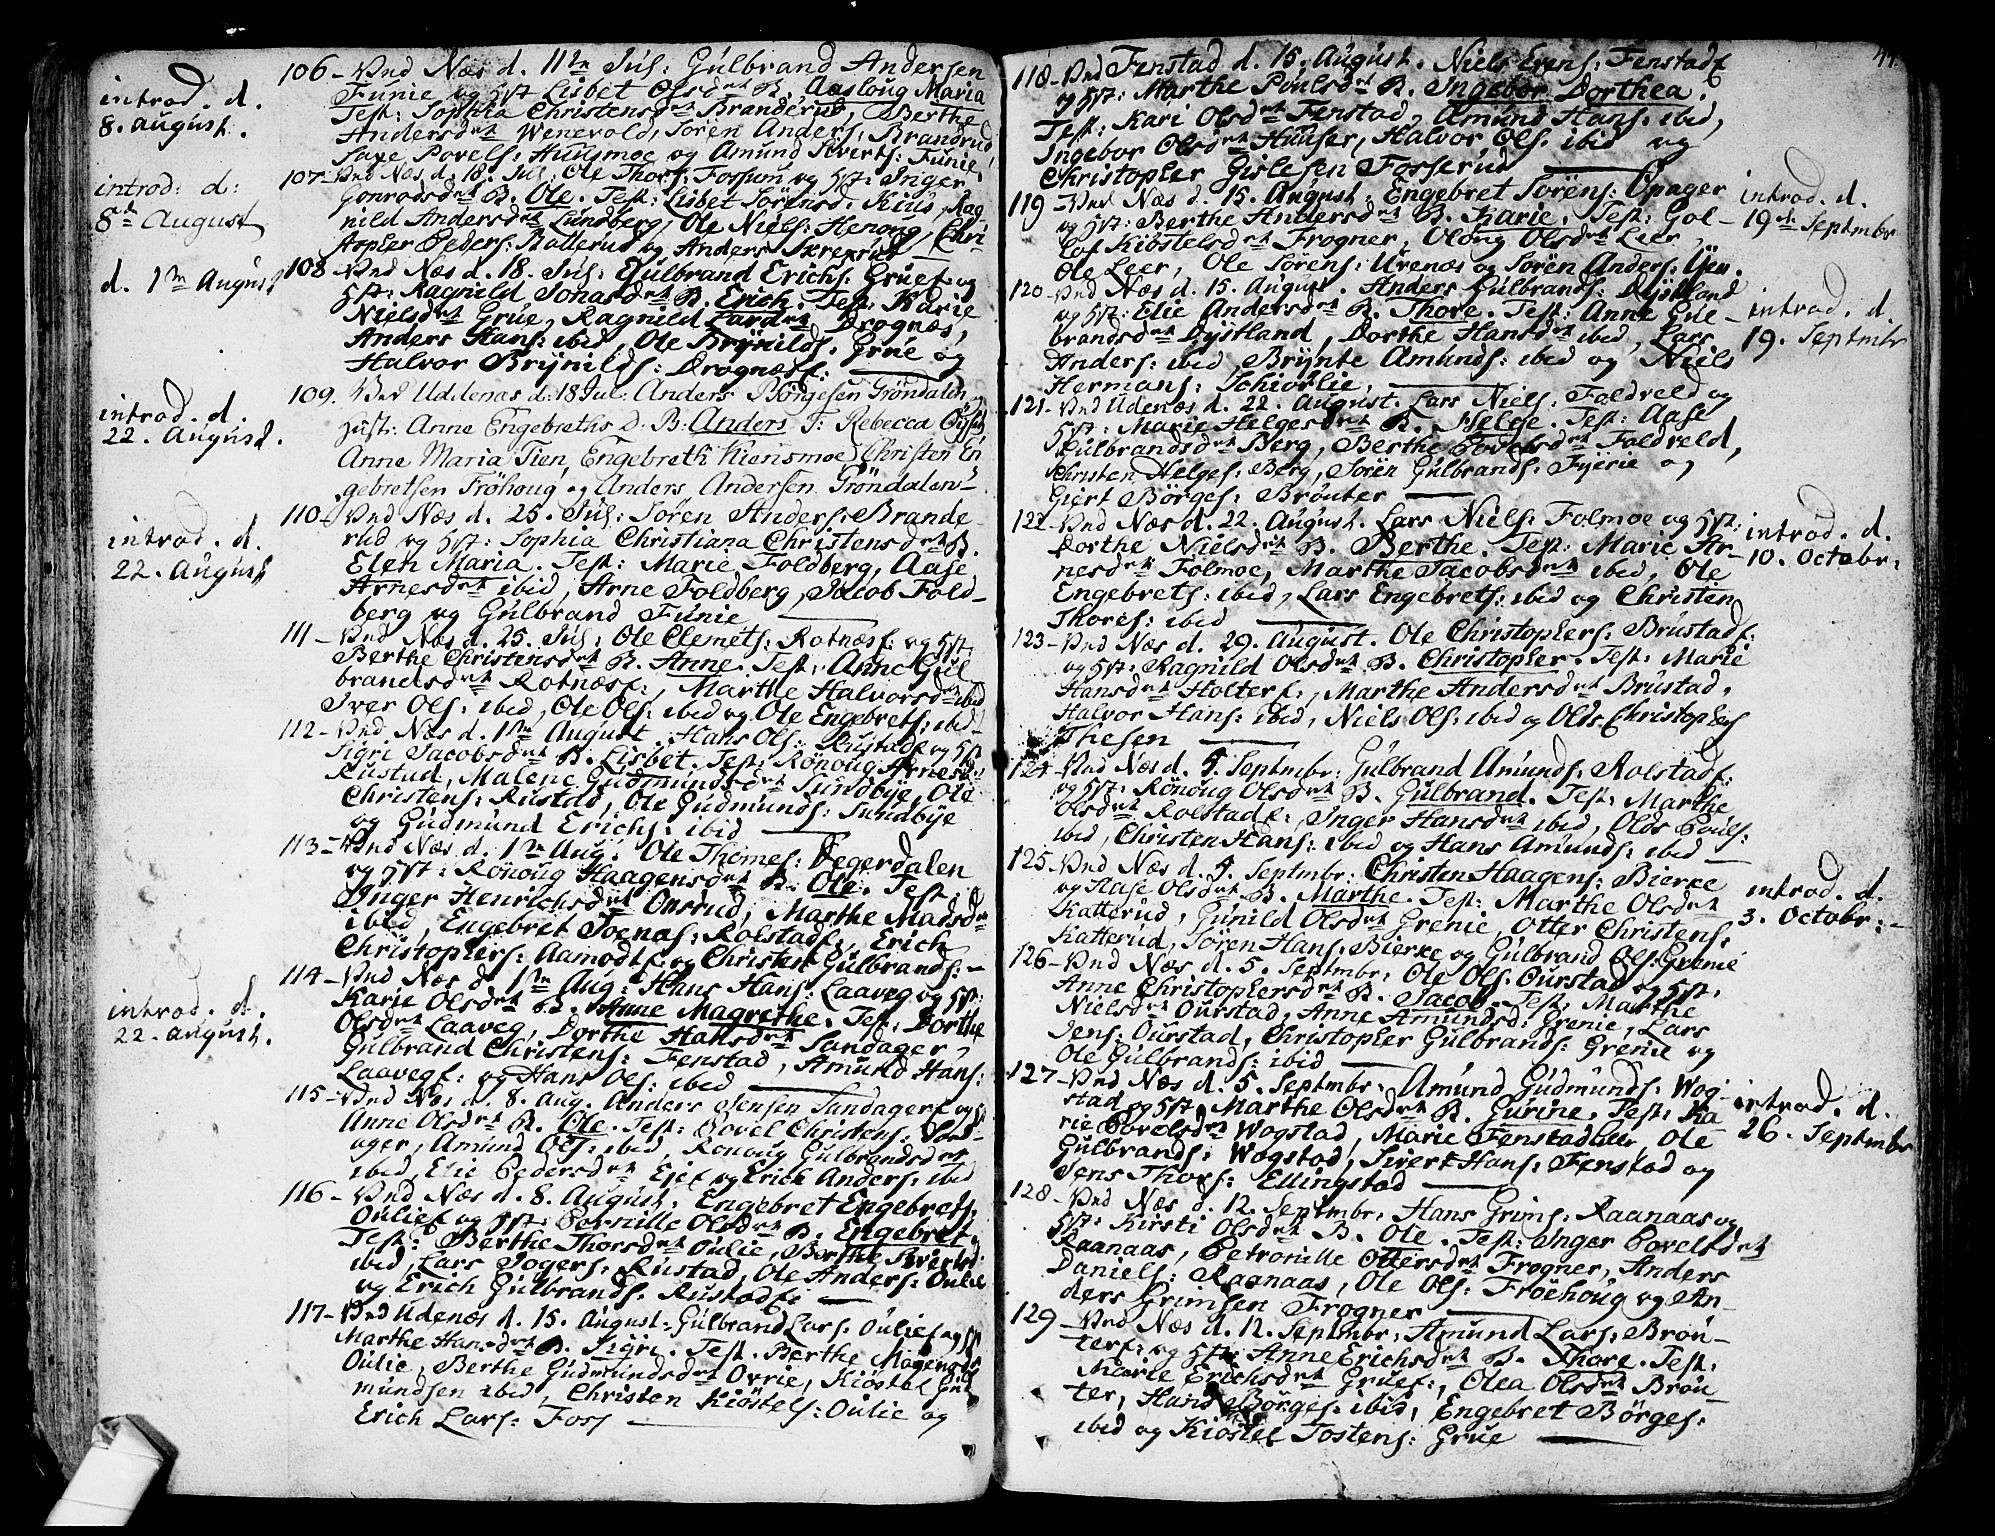 introd. d.
8. August.
106 - Und Næs d. 11te Jul: Gulbrand Andersen
Funie og Hst Lisbet Olsdatt B. Aaslaug Maria
Test: Sophia Christensdatt Branderud, Berthe
Andersdatt Wenevold, Sören Anders: Brandrud
Povels: Huusmoe og Amund Sverts: Funie
introd: d:
8de August
107 - Und Næs d. 18. Jul: Ole Thors: Fossum og Hst: Inger
Gonrodsdatt B. Ole. Test: Lisbet Sörensd. Kius, Rag-
nild Andersdatt Lundberg, Ole Niels: Henong, Chri-
stopher Peders: Kallerud og Anders Skrexrud
d. 1ste August
108 Und Næs d. 18. Jul: Gulbrand Erichs: Gruef og
Hst: Ragnild Jonasdatt B. Erich. Test: Karie
Nielsdatt Grue, Ragnild Lardatt Drognæs,
Anders Hans: ibid, Ole Brÿnilds: Grue og
Halvor Brÿnilds: Drognæsf:
introd. d.
22. August.
109. Und Uddenæs d: 18 Jul: Anders Börgesen Gröndalen og
Hust: Anne Engebreths D: B: Anders T: Rebecca
Anne Maria Tien, Engebreth Kiensmoe Christen En
gebretsen Fröhoug og Anders Andersen Gröndalen
introd. d.
22. August
110 - Und Næs d. 25. Jul: Sören Anders: Brande-
rud og Hst: Sophia Christiana Christensdatt B.
Elen Maria. Test: Marie Foldberg, Aase
Arnesdatt ibid, Arne Foldberg, Jacob Fold-
berg og Gulbrand Funie
111 - Und Næs d. 25. Jul: Ole Clemets: Rotnæsf: og Hst:
Berthe Christensdatt B. Anne. Test: Anne Gul
brandsdatt Rotnæsf:, Marthe Halvorsdatt ibid
Iver Ols: ibid, Ole Ols: ibid og Ole Engebrets: ibid
112 - Und Næs d. 1ste August. Hans Ols: Rustadf og Hst
Sigri Jacobsdatt B. Lisbet. Test: Rönoug Arnesd:
Rustad, Malene Gudmundsdatt Sundbÿe, Ole
Christens: Rustad, Ole Gudmunds: Sundbÿe
og Gudmund Erichs: ibid
113 - Und Næs d. 1ste Aug: Ole Thomes: Degerdalen
og Hst: Rönoug Haagensdatt B. Ole. Test:
Inger Henrichsdatt Onsrud, Marthe Madsdatt
ibid, Engebret Joenas: Rolstadf:, Erich
Christophers: Aamodtf: og Christen Gulbrands: -
introd. d.
22. August.
114 - Und Næs d. 1ste Aug: Hans Hans: Laaveg og Hst:
Karie Olsdatt B. Anne Magrethe. Test: Dorthe
Olsdatt Laaveg, Dorthe Hansdatt Sandager,
Gulbrand Christens: Fenstad, Amund Hans:
Laavegf: og Hans Ols: ibid
115 - Und Næs d. 8. Aug. Anders Jensen Sandagerf og Hst
Anne Olsdatt B. Ole. Test: Povel Christens: Sand-
ager, Amund Ols: ibid, Rönoug Gulbrandsdatt
ibid, Elie Pedersdatt Ejef og Erich Anders: ibid
116 - Und Næs d. 8. August: Engebret Engebrets:
Oulief og Hst: Pernille Olsdatt B. Engebret.
Test: Berthe Thorsdatt Oulie, Berthe Svertsd:
ibid, Lars Jogers: Rustad, Ole Anders: Oulie
og Erich Gulbrands: Rustadf:
117 - Und Udenæs d. 15. August: Gulbrand Lars: Oulief og Hst
Marthe Hansdatt B. Sigri. Test. Berthe Mogensd
Oulie, Berthe Gudmundsdatt Ovrie, Kiöstel Gud
mundsen ibid, Christen Kiöstels: Oulie og
Erich Lars: Foss
118 - Und Fenstad d. 15. August. Niels Evens: Fenstadf
og Hst: Marthe Poulsdatt B. Ingebor Dorthea.
Test: Kari Olsdatt Fenstad, Amund Hans: ibid,
Ingebor Olsdatt Huuser, Halvor Ols: ibid og
Christopher Gislesen Fosserud
119 Und Næs d. 15. August. Engebret Sörens: Opager
og Hst: Berthe Andersdatt B. Karie. Test: Gol-
lof Kiöstelsdatt Frogner, Olöug Olsdatt Leer,
Ole Leer, Ole Sörens: Urenæs og Sören Anders: Uen.
introd. d.
19de Septembr
120 - Und Næs d. 15. August. Anders Gulbrands: Dÿstland
og Hst: Elie Andersdatt B. Thore. Test: Anne Gul-
brandsdatt Dÿstland, Dorthe Hansdatt ibid, Lars
Anders: ibid Brÿnte Amunds: ibid og Niels
Hermans: Schiörlie,
introd. d.
19. Septembr
121 - Und Udenæs d. 22. August. Lars Niels: Foldveld og
Hst: Marie Helgesdatt B. Helge. Test: Aase
Gulbrandsdatt Berg, Berthe Povelsdatt Foldveld,
Christen Helges: Berg, Sören Gulbrands: Fÿerie og
Giert Börges: Brönter
122 - Und Næs d. 22. August. Lars Niels: Folmoe og Hst:
Dorthe Nielsdatt B. Berthe. Test: Marie Ar-
nesdatt Folmoe, Marthe Jacobsdatt ibid, Ole
Engebrets: ibid, Lars Engebrets: ibid og Christen
Thores: ibid
introd. d.
10. Octobr:
123 - Und Næs d. 29. August. Ole Christophers: Brustadf:
og Hst: Ragnild Olsdatt B. Christopher. Test: Marie
Hansdatt Holterf:, Marthe Andersdatt Brustad,
Halvor Hans: ibid, Niels Ols: ibid og Olds Christophers
Thesen
124 - Und Næs d. 5. Septembr: Gulbrand Amunds: Rolstadf:
og Hst: Rönoug Olsdatt B. Gulbrand. Test: Marthe
Olsdatt Rolstadf:, Inger Hansdatt ibid, Olds Pouls:
ibid, Christen Hans: ibid og Hans Amunds: ibid
125 - Und Næs d. 5. Septembr: Christen Haagens: Bierke
og Aase Olsdatt B. Marthe. Test: Marthe Olsdatt
Katterud, Gunild Olsdatt Grenie, Otter Christens:
Katterud, Sören Hans: Bierke og Gulbrand Ols: Grenie
introd. d.
3. Octobr: -
126 - Und Næs d. 5. Septembr: Ole Ols: Ourstad og Hst:
Anne Christophersdatt B. Jacob. Test: Marthe
Nielsdatt Ourstad, Anne Amundsd: Grenie, Lars
Jens: Ourstad, Christopher Gulbrands: Grenie og
Ole Gulbrands: ibid
127 - Und Næs d. 5. Septembr: Amund Gudmunds: Wog-
stad og Hst Marthe Olsdatt B. Gurine. Test: Ka
rie Povelsdatt Wogstad, Marie Fenstad, Ole
Gulbrands: Wogstad, Sivert Hans: Fenstad og
Jens Thors: Ellingstad
introd. d.
26. Septembr
128 - Und Næs d. 12. Septembr: Hans Grims: Raanaas og
Hst: Kirsti Olsdatt B. Ole. Test: Inger Povelsdatt
Raanaas, Petronille Ottersdatt Frogner, Anders
Daniels: Raanaas, Ole Ols: Fröehoug og An-
ders Grimsen Frogner
129 - Und Næs d. 12. Septembr: Amund Lars: Bröu-
terf: og Hst: Anne Erichsdatt B. Thore. Test:
Marie Erichsdatt Gruef:, Olea Olsdatt Bröu-
ter, Hans Börges: ibid, Engebret Börges:
ibid og Kiöstel Tostens: Grue